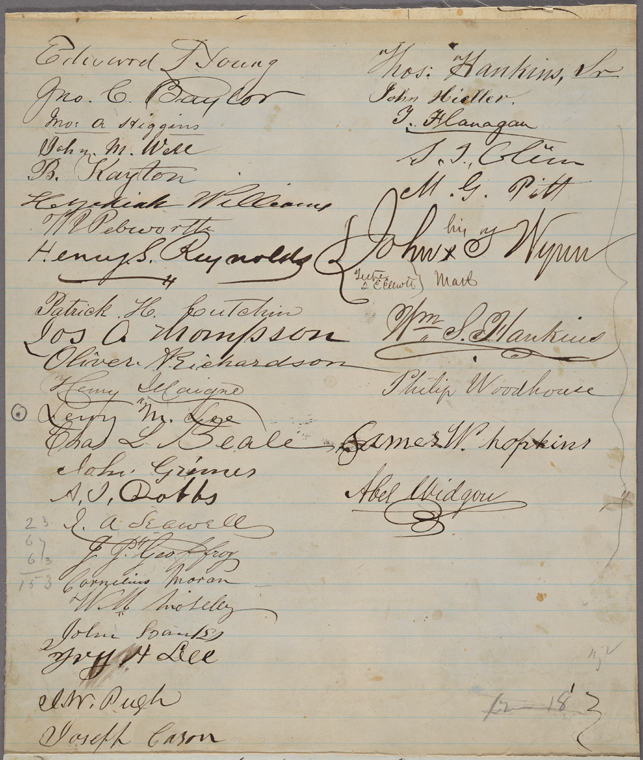 Edward T Young
Jno. C. Baylor
Mo: A Higgins
John. M. West
B. Kayton
Hezekiah Williams
W Pebworth
Henry S. Reynolds
Patrick H. Cutchin
Jos A Thompson
Oliver N Richardson
Henry Maigne
Leroy M. Lee
Chas L Beale
John Grimes
A. J. Dobbs
J. A Seawell
J. P. Geoffroy
Cornelius Moran
W. M Moseley
John Banks
H Lee
J. W. Pugh
Joseph Cason
23
67
63
153
Thos: Hankins, Sr
John Hietler.
T. Flanagan
S. T.
M. G. Pitt
his
John x T Wynn
Mark
Wm S. Hankins
Philip Woodhouse
James W. Hopkins
Abel Widgou
12 - 18